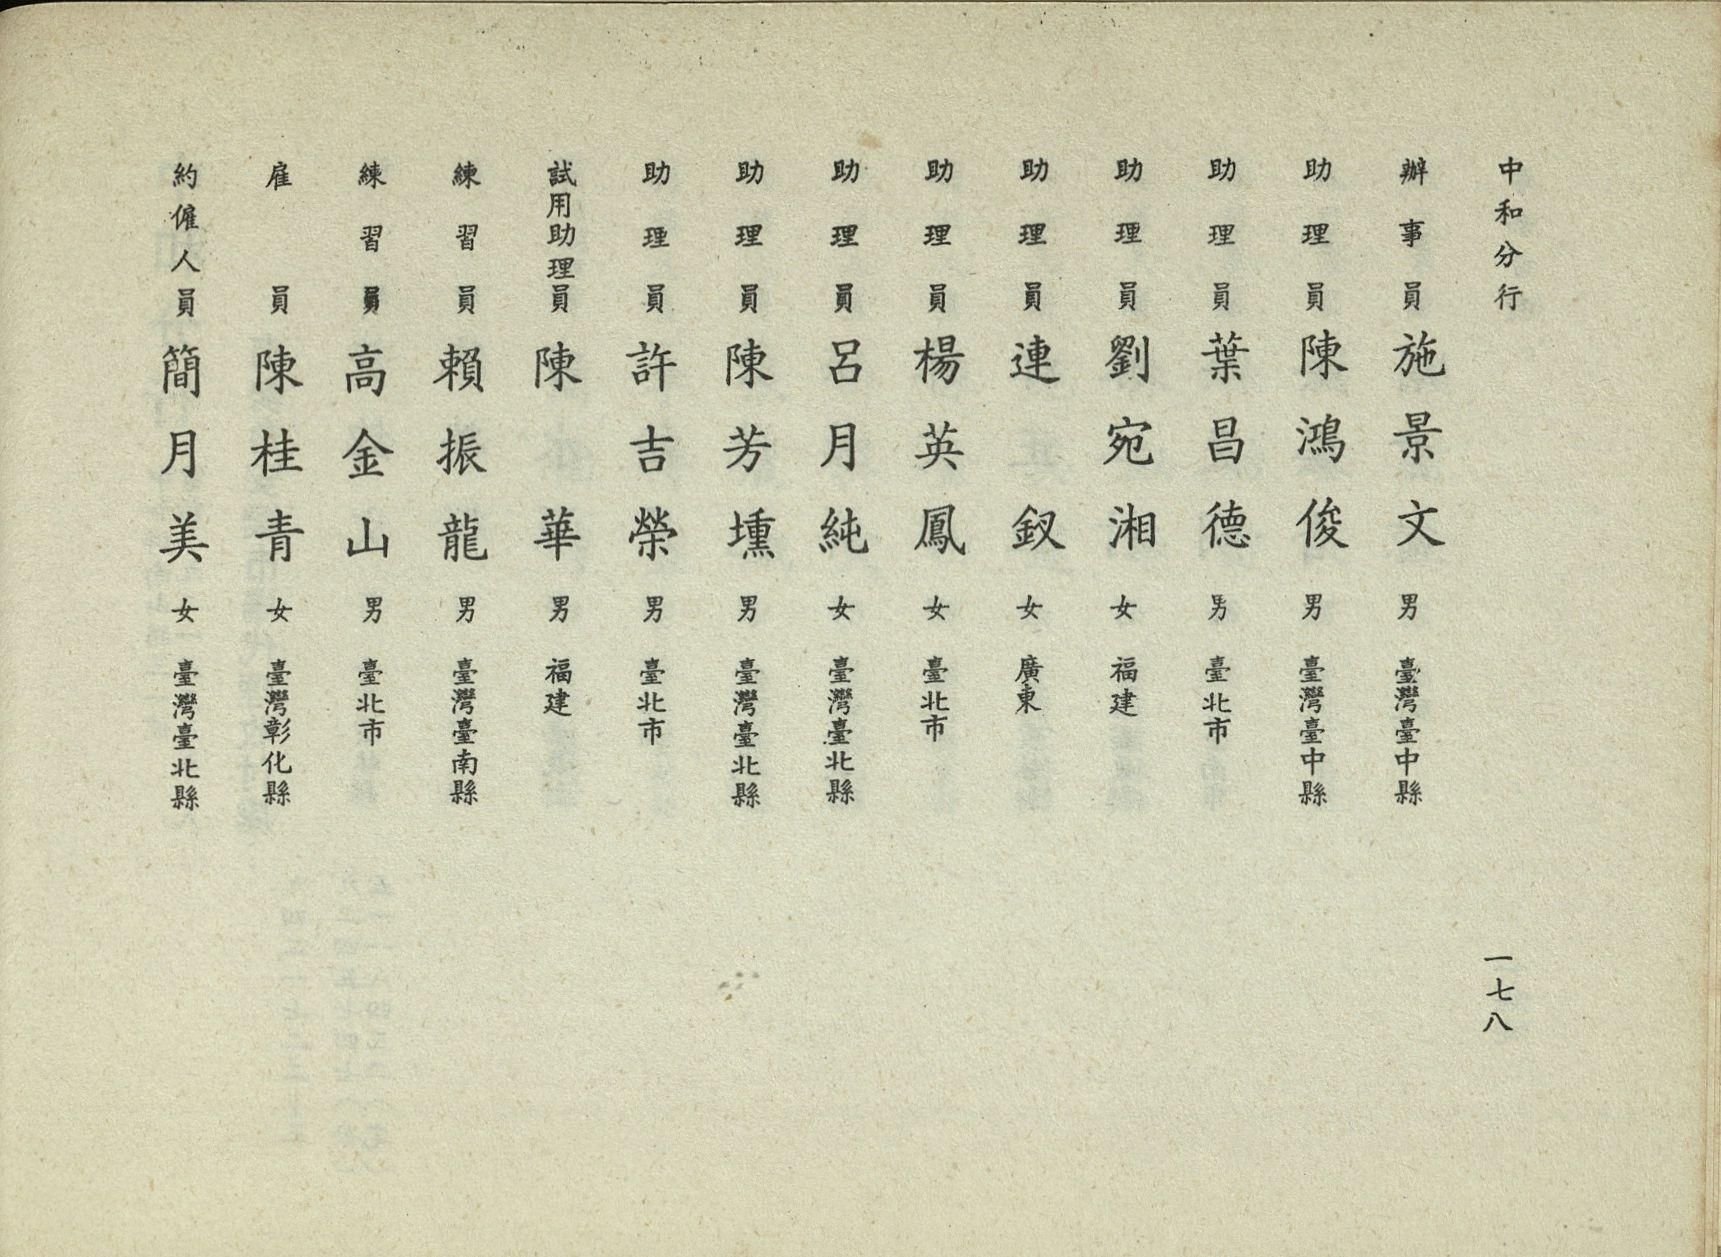 中和分行
辦事員 施景文 男 臺灣臺中縣
助理員 陳鴻俊 男 臺灣臺中縣
助理員 葉昌德 男 臺北市
助理員 劉宛湘 女 福建
助理員 連釵 女 廣東
助理員 楊英鳳 女 臺北市
助理員 呂月純 女 臺灣臺北縣
助理員 陳芳壎 男 臺灣臺北縣
助理員 許吉榮 男 臺北市
試用助理員 陳華 男 福建
練習員 賴振龍 男 臺灣臺南縣
練習員 高金山 男 臺北市
雇員 陳桂青 女 臺灣彰化縣
約僱人員 簡月美 女 臺灣臺北縣
一七八